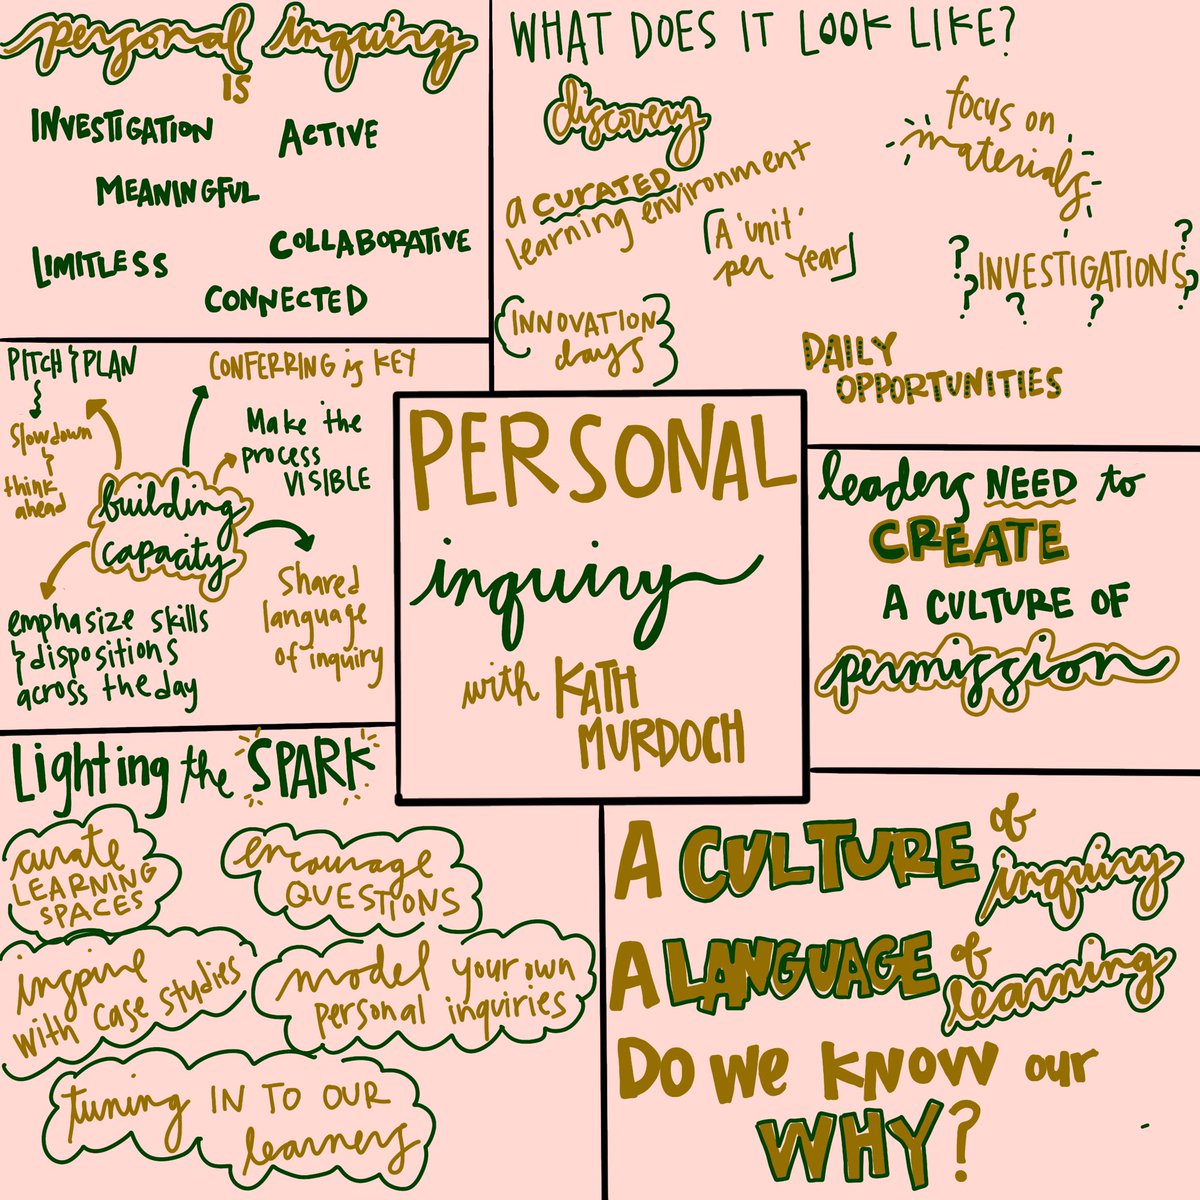 personal inquiry
IS
INVESTIGATION
ACTIVE
MEANINGFUL
LIMITLESS
COLLABORATIVE
CONNECTED
WHAT DOES IT LOOK LIKE?
discovery
focus on
materials
a CURATED
learning environment
[A 'unit'
per year]
? INVESTIGATIONS ?
? ? ? ?
(INNOVATION
days)
DAILY
OPPORTUNITIES
PITCH & PLAN
slow down
&
think
ahead
CONFERRING is KEY
Make the
process
VISIBLE
building
capacity
Shared
language
of inquiry
emphasize skills
& dispositions
across the day
PERSONAL
inquiry
with KATH
MURDOCH
leaders NEED to
CREATE
A CULTURE OF
permission
Lighting the SPARK
curate
LEARNING
SPACES
encourage
QUESTIONS
inspire
with case studies
model your own
personal inquiries
tuning IN TO OUR
learners
A CULTURE of
inquiry
A LANGUAGE of
learning
DO WE KNOW our
WHY?